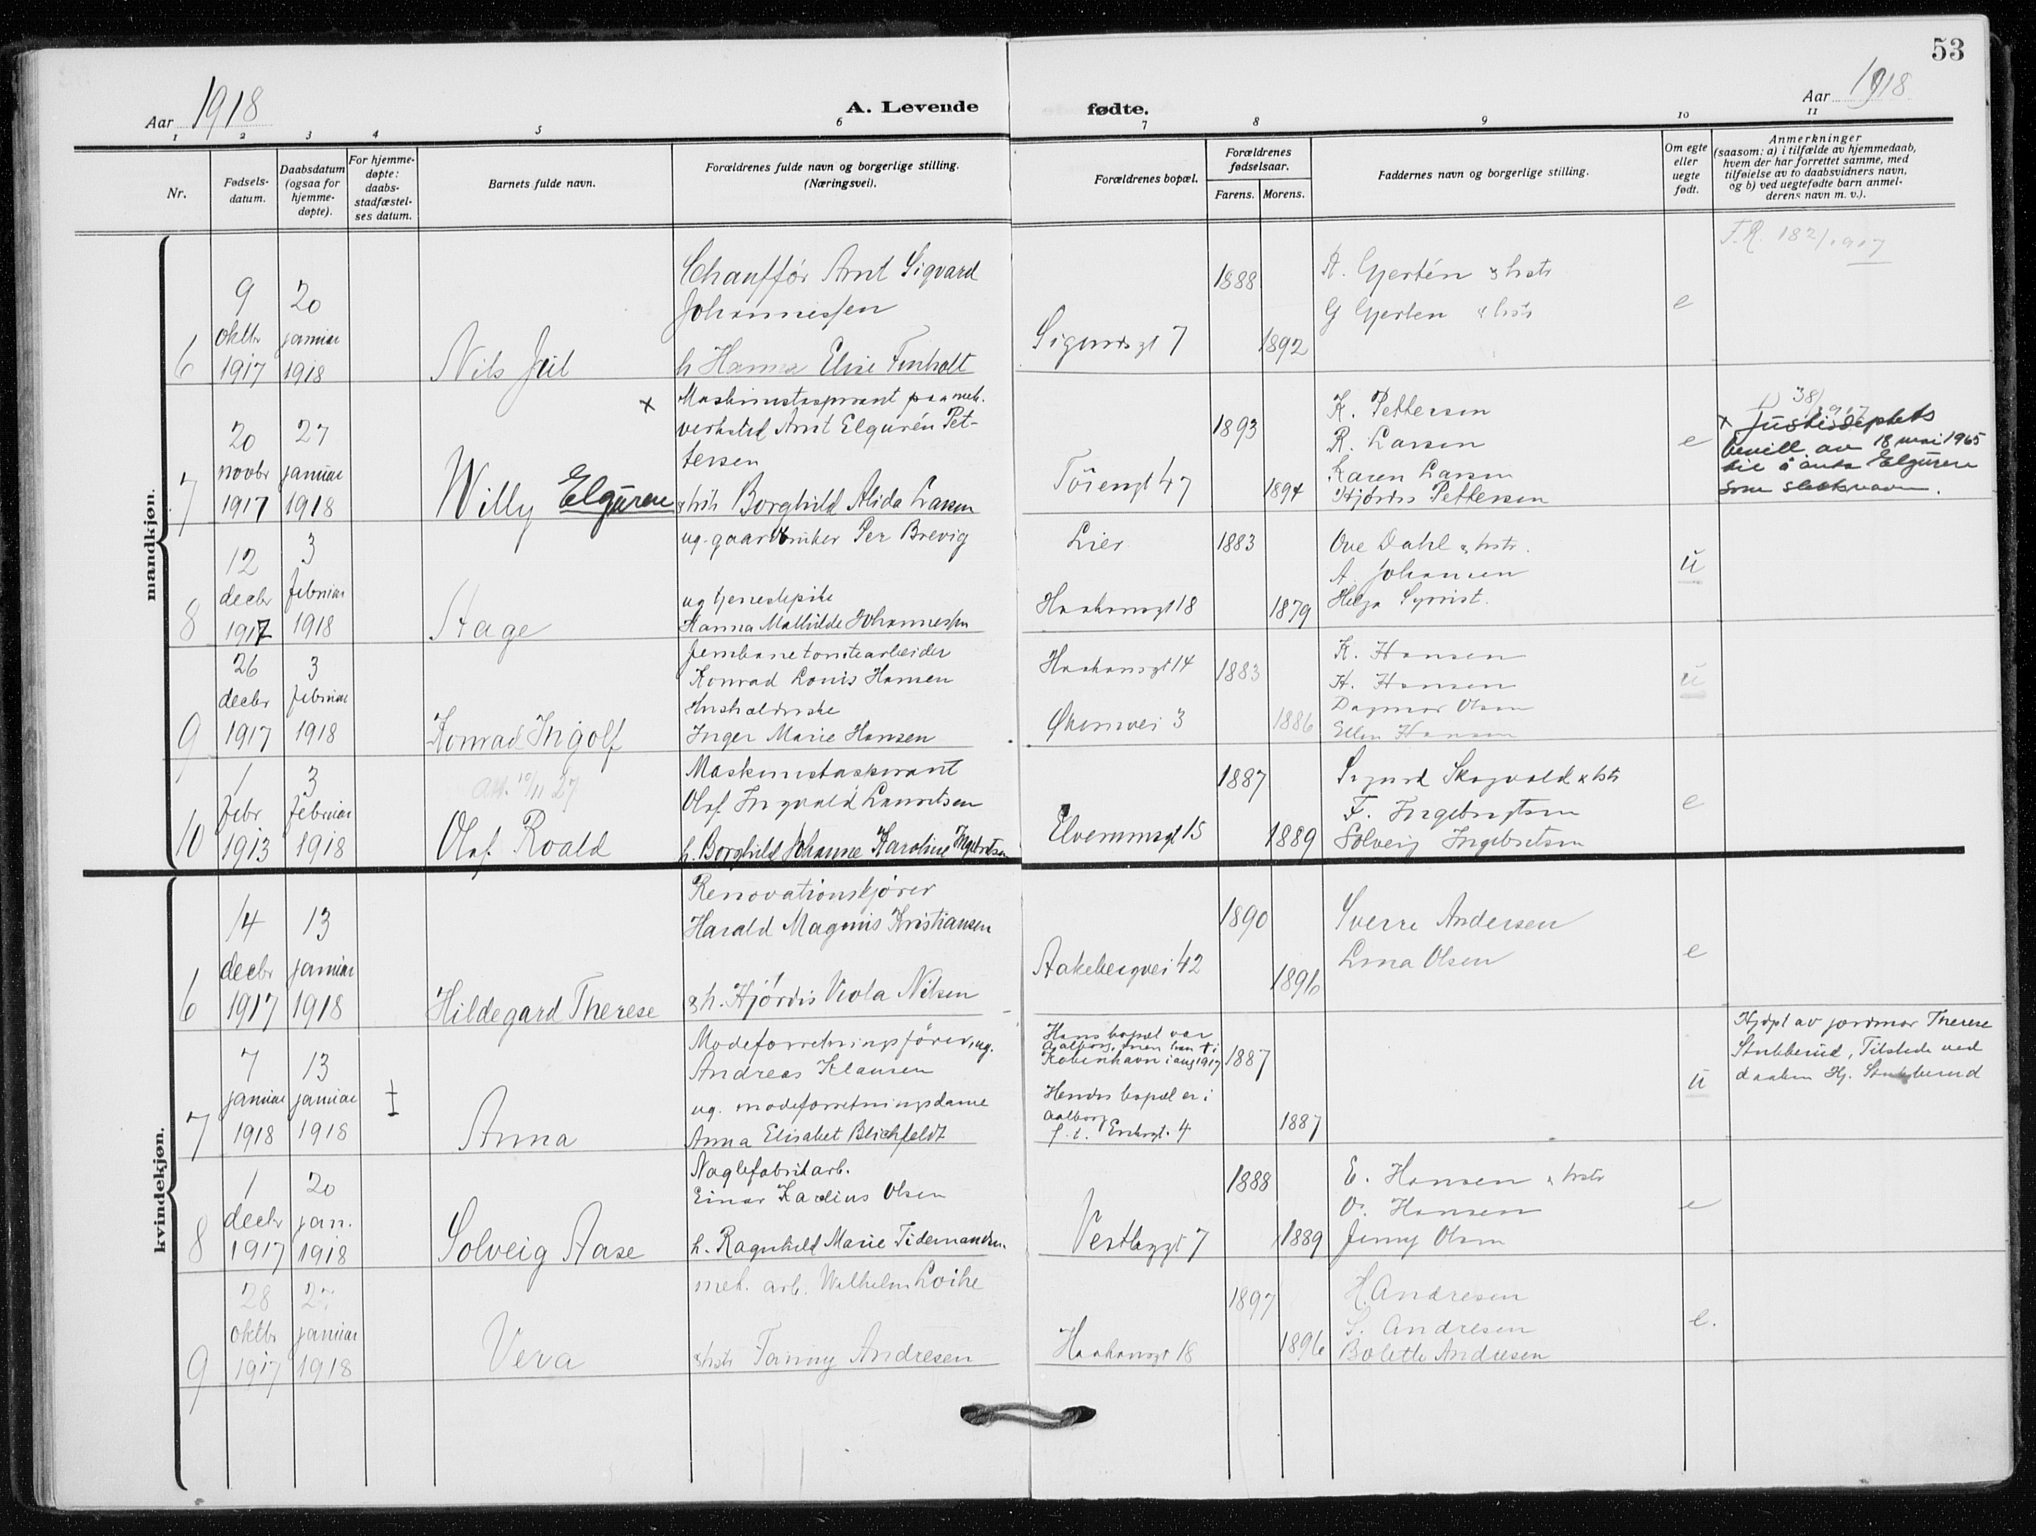 53
Aar 1918
A. Levende
fødte.
Aar 1918
1 2 3 4 5 6 7 8 9 10 11
Nr.
Fødsels-
datum.
Daabsdatum
(ogsaa for
hjemme-
døpte).
For hjemme-
døpte:
daabs-
stadfæstel-
ses datum.
Barnets fulde navn.
Forældrenes fulde navn og borgerlige stilling.
(Næringsvei).
Forældrenes bopæl.
Forældrenes
fødselsaar.
Farens. Morens.
Faddernes navn og borgerlige stilling.
Om egte
eller
uegte
født.
Anmerkninger
(saasom: a) i tilfælde av hjemmedaab,
hvem der har forrettet samme, med
tilføielse av to daabsvidners navn,
og b) ved uegtefødte barn anmel-
derens navn m. v.).
mandkjøn.
6
9
oktbr
1917
20
januar
1918
Nils Juil
Chauffør Arnt Sigvard
Johannessen
h Hanna Elise Finholt
Sigurdsgt 7
1888
1892
A. Gjertén & hstr
G Gjerten & hstr
e
F.R. 182/1917
7
20
novbr
1917
27
januar
1918
Willy Elguren
x
Maskinistaspirant paa mek.
verksted Arnt Elgurén Pet-
tersen
& hstr Borghild Alida Larsen
Töiengt 47
1893
1894
K. Pettersen
R. Larsen
Karen Larsen
Hjørdis Pettersen
e
38/1917
x Justisdeptets
bevill. av 18 mai 1965
til å anta Elguren
som slektsnavn.
8
12
decbr
1917
3
februar
1918
Hage
ug. gaardbruker Per Brevig
ug tjenestepike
Hanna Mathilde Johannessen
Lier
Haakonsgt 18
1883
1879
Ove Dahl & hstr.
A. Johansen
Helga
u
9
26
decbr
1917
3
februar
1918
Konrad Ingolf
Jernbanetomtearbeider
Konrad Louis Hansen
Inger Marie Hansen
Haakonsgt 14
Økernvei 3
1883
1886
K. Hansen
H. Hansen
Dagmar Olsen
Ellen Hansen
u
10
1
febr
1913
3
februar
1918
Att. 10/11 27
Olaf Roald
Maskinistaspirant
Olaf Ingvald Lauritsen
h. Borghild Johanne Karoline Ingebretsen
Elverumsgt 15
1887
1889
Sigurd Skogvold & hstr
F. Ingebrigtsen
Solveig Ingebretsen
e
kvindekjøn.
6
14
decbr
1917
13
januar
1918
Hildegard Therese
Renovationskjører
Harald Magnus Kristiansen
& h. Hjørdis Viola Nilsen
Aakebergvei 42
1890
1896
Sverre Andersen
Lina Olsen
e
7
7
januar
1918
13
januar
1918
Anna
Modeforretningsfører, ug.
Andreas Klausen
ug. modeforretningsdame
Anna Elisabet Blichfeldt
Hans bopæl var
Aalborg, men han † i
København i aug 1917
Hendes bopæl er i
Aalborg
f. t. Enbgt. 4
1887
1887
u
Hjdpt av jordmor Therese
Stubberud, Tilstede ved
daaben Hj. Stubberud
8
1
decbr
1917
20
jan.
1918
Solveig Aase
Naglefabrikarb.
Einar Karelius Olsen
h. Ragnhild Marie Tidemansen.
Vestbygt 7
1888
1889
E. Hansen & hstr
O. Hansen
Jenny Olsen
e
9
28
oktbr
1917
27
januar
1918
Vera
mek. arb. Wilhelm Loike
& hstr Fanny Andresen
Haakonsgt 18
1897
1896
H. Andresen
S. Andresen
Bolette Andresen
e.